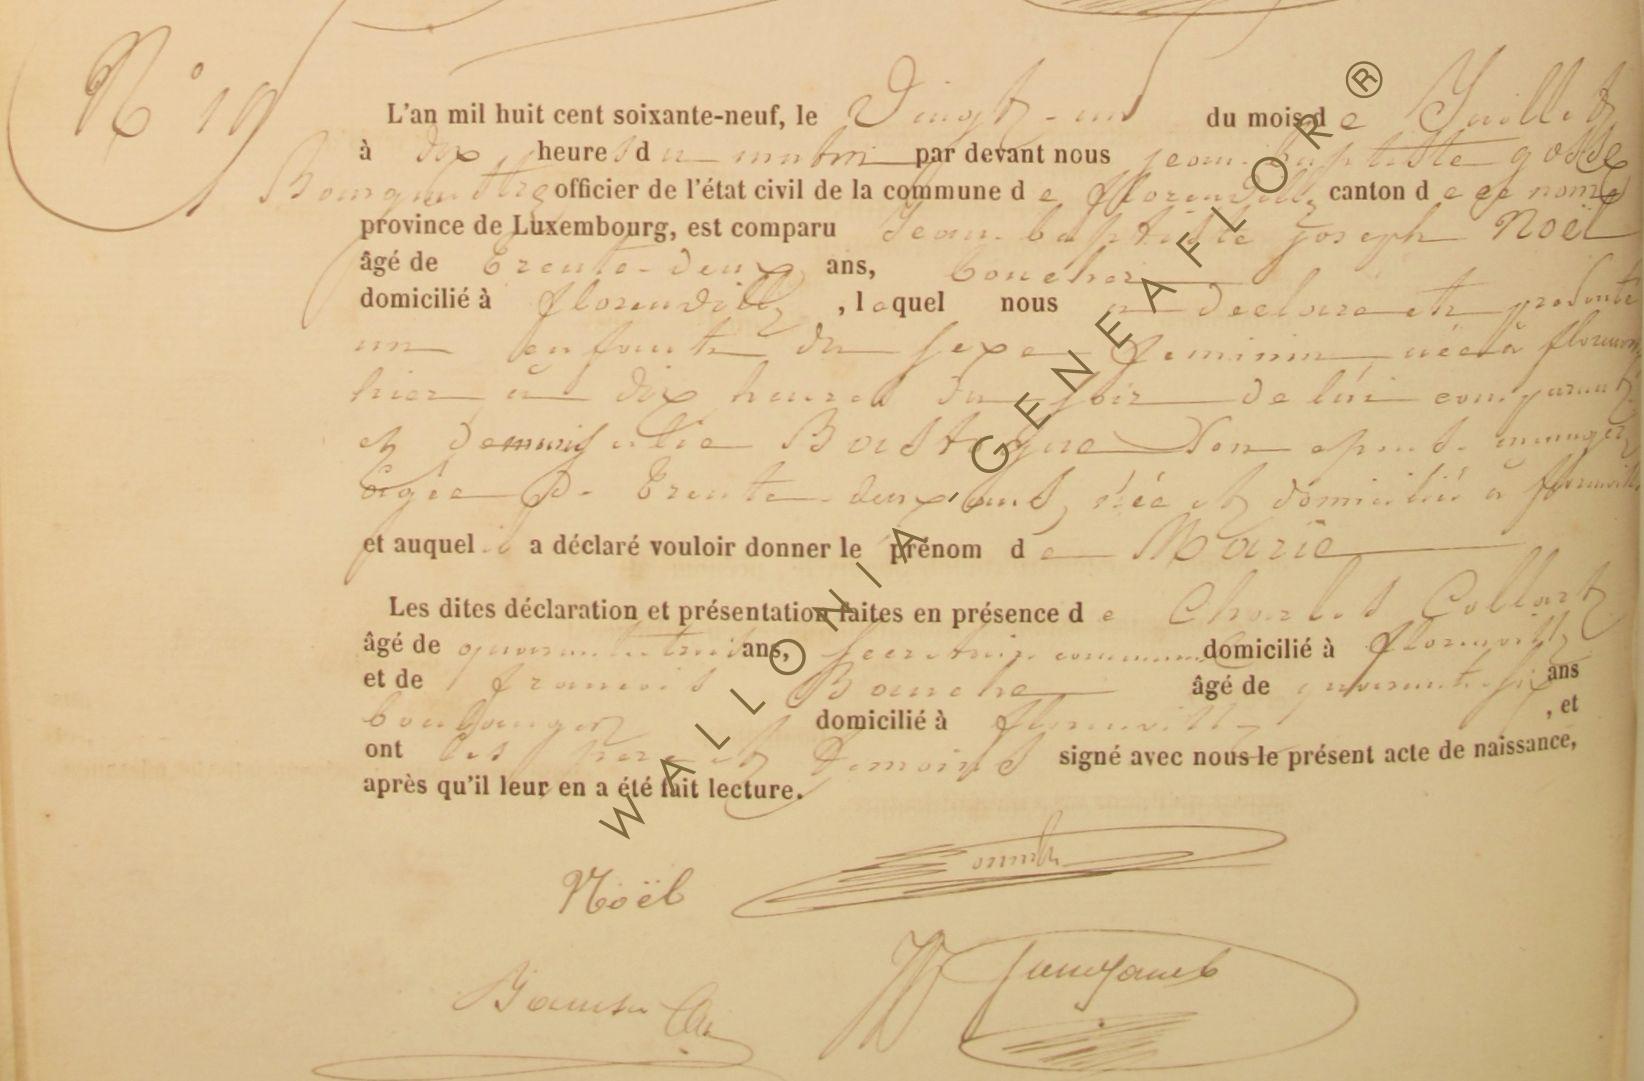 N° 19
L'an mil huit cent soixante-neuf, le Vingt-un du mois de Juillet
à dix heures du matin par devant nous jean-baptiste gosse
Bourguestre officier de l'état civil de la commune de florenville canton de ce nom
province de Luxembourg, est comparu Jean-baptiste joseph Noël
âgé de Trente-deux ans, boucher
domicilié à florenville, lequel nous a déclaré et présenté
un enfant du sexe féminin née à
hier à dix heures du soir de lui comparant
et de julie Bastogne son
âgée de Trente-deux ans, née et domicilié à florenville
et auquel il a déclaré vouloir donner le prénom de Marie
Les dites déclaration et présentation faites en présence de Charles Collart
âgé de ans, secrétaire communal domicilié à florenville
et de francois Bauche âgé de quarante-six ans
boulanger domicilié à florenville, et
ont les père et témoins signé avec nous le présent acte de naissance,
après qu'il leur en a été fait lecture.
Noël
WALLONIA, GENEAFLOR®